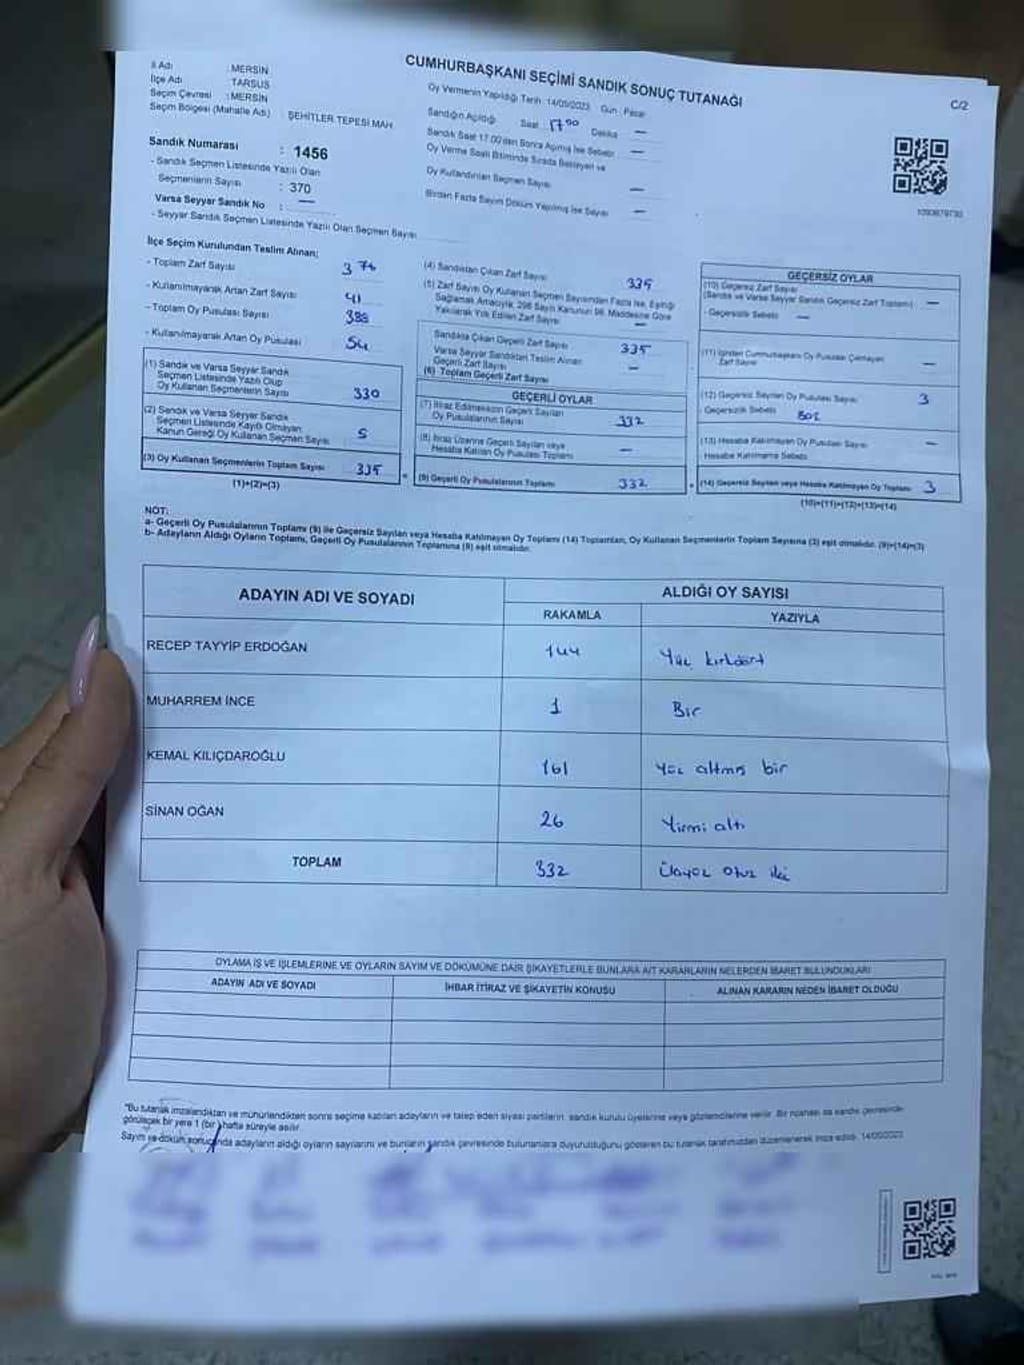 CUMHURBAŞKANI SEÇİMİ SANDIK SONUÇ TUTANAĞI
C/2
İl Adı : MERSİN
İlçe Adı : TARSUS
Seçim Çevresi : MERSİN
Seçim Bölgesi (Mahalle Adı) : ŞEHİTLER TEPESİ MAH.
Sandık Numarası : 1456
- Sandık Seçmen Listesinde Yazılı Olan
Seçmenlerin Sayısı : 370
Varsa Seyyar Sandık No : —
- Seyyar Sandık Seçmen Listesinde Yazılı Olan Seçmen Sayısı
Oy Vermenin Yapıldığı Tarih : 14/05/2023 Gün : Pazar
Sandığın Açıldığı Saat : 17 00 Dakika —
Sandık Saat 17.00'den Sonra Açılmış İse Sebebi —
Oy Verme Saati Bitiminde Sırada Bekleyen ve
Oy Kullandırılan Seçmen Sayısı —
Birden Fazla Sayım Döküm Yapılmış İse Sayısı —
İlçe Seçim Kurulundan Teslim Alınan;
- Toplam Zarf Sayısı
- Kullanılmayarak Artan Zarf Sayısı 41
- Toplam Oy Pusulası Sayısı
- Kullanılmayarak Artan Oy Pusulası 54
(1) Sandık ve Varsa Seyyar Sandık
Seçmen Listesinde Yazılı Olup
Oy Kullanan Seçmenlerin Sayısı 330
(2) Sandık ve Varsa Seyyar Sandık
Seçmen Listesinde Kayıtlı Olmayan
Kanun Gereği Oy Kullanan Seçmen Sayısı 5
(3) Oy Kullanan Seçmenlerin Toplam Sayısı 335
(1)+(2)=(3)
(4) Sandıktan Çıkan Zarf Sayısı 335
(5) Zarf Sayısı Oy Kullanan Seçmen Sayısından Fazla İse, Eşitliği
Sağlamak Amacıyla, 298 Sayılı Kanunun 98. Maddesine Göre
Yakılarak Yok Edilen Zarf Sayısı —
Sandıkta Çıkan Geçerli Zarf Sayısı 335
Varsa Seyyar Sandıktan Teslim Alınan
Geçerli Zarf Sayısı —
(6) Toplam Geçerli Zarf Sayısı
GEÇERLİ OYLAR
(7) İtiraz Edilmeksizin Geçerli Sayılan
Oy Pusulalarının Sayısı 332
(8) İtiraz Üzerine Geçerli Sayılan veya
Hesaba Katılan Oy Pusulası Toplamı —
(9) Geçerli Oy Pusulalarının Toplamı 332
GEÇERSİZ OYLAR
(10) Geçersiz Zarf Sayısı —
(Sandık ve Varsa Seyyar Sandık Geçersiz Zarf Toplamı)
- Geçersizlik Sebebi —
(11) İçinden Cumhurbaşkanı Oy Pusulası Çıkmayan
Zarf Sayısı —
(12) Geçersiz Sayılan Oy Pusulası Sayısı 3
- Geçersizlik Sebebi
(13) Hesaba Katılmayan Oy Pusulası Sayısı —
- Hesaba Katılmama Sebebi
(14) Geçersiz Sayılan veya Hesaba Katılmayan Oy Toplamı 3
(10)+(11)+(12)+(13)=(14)
NOT:
a- Geçerli Oy Pusulalarının Toplamı (9) ile Geçersiz Sayılan veya Hesaba Katılmayan Oy Toplamı (14) Toplamları, Oy Kullanan Seçmenlerin Toplam Sayısına (3) eşit olmalıdır. (9)+(14)=(3)
b- Adayların Aldığı Oyların Toplamı, Geçerli Oy Pusulalarının Toplamına (9) eşit olmalıdır.
ADAYIN ADI VE SOYADI
ALDIĞI OY SAYISI
RAKAMLA YAZIYLA
RECEP TAYYİP ERDOĞAN 144 Yüz kırkdört
MUHARREM İNCE 1 Bir
KEMAL KILIÇDAROĞLU 161 Yüz altmış bir
SİNAN OĞAN 26 Yirmi altı
TOPLAM 332 Üçyüz otuz iki
OYLAMA İŞ VE İŞLEMLERİNE VE OYLARIN SAYIM VE DÖKÜMÜNE DAİR ŞİKAYETLERLE BUNLARA AİT KARARLARIN NELERDEN İBARET BULUNDUKLARI
ADAYIN ADI VE SOYADI İHBAR İTİRAZ VE ŞİKAYETİN KONUSU ALINAN KARARIN NEDEN İBARET OLDUĞU
"Bu tutanak imzalandıktan ve mühürlendikten sonra seçime katılan adayların ve talep eden siyasi partilerin, sandık kurulu üyelerine veya gözlemcilerine verilir. Bir nüshası da sandık çevresinde
görülecek bir yere 1 (bir) hafta süreyle asılır.
Sayım ve döküm sonucunda adayların aldığı oyların sayılarını ve bunların sandık çevresinde bulunanlara duyurulduğunu gösteren bu tutanak tarafımızdan düzenlenerek imza edildi. 14/05/2023